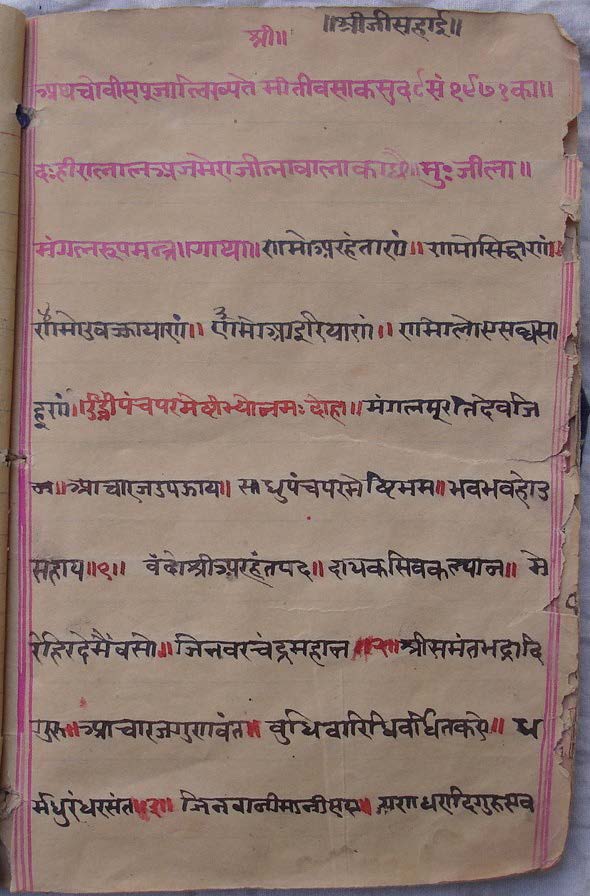 ॥श्रीजीसहाई॥
श्री॥
अथचोवीसपूजालिख्यते मीतीवसाकसुद९सं१९७१का॥
दःहीरालालअजमेराजीलावालाकाछै॥मुःजीला॥
मंगलरूपमन्त्र॥गाथा॥णमोअरहंताणं॥ णमोसिद्धाणं॥
४णमोउवज्झायाणं॥ ३णमोआइरियाणं॥ णमोलोएसव्वसा
हूणं॥ॐह्रींपंचपरमेष्ठीभ्योनमः दोहा॥ मंगलमूरतिदेवजि
न॥आचारजउपझाय॥ साधुपंचपरमेष्टिमम॥भवभवहोउ
सहाय॥१॥ वंदोश्रीअरहंतपद॥दायकसिवकल्यान॥ मे
रेहिरदेमैंवसो॥जिनवरचंद्रमहान॥२॥श्रीसमंतभद्रादि
गुरू॥आचारजगुणवंत॥ बुधिवारिधिवर्धितकरो॥ ध
र्मधुरंधरसंत॥३॥ जिनवानीमानी गणधरादिगुरूसव